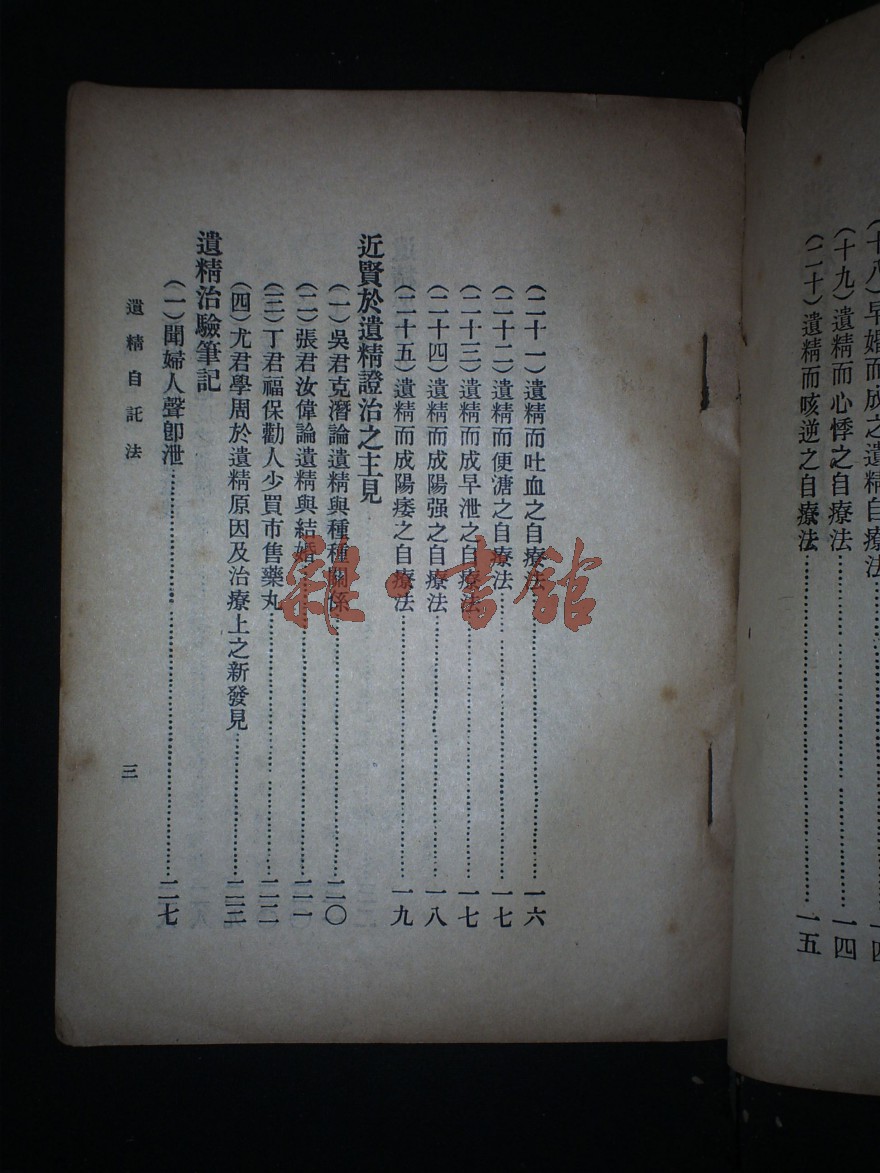 (十八)早婚而成之遺精自療法
(十九)遺精而心悸之自療法……一四
(二十)遺精而咳逆之自療法……一五
(二十一)遺精而吐血之自療法……一六
(二十二)遺精而便溏之自療法……一七
(二十三)遺精而成早泄之自療法……一七
(二十四)遺精而成陽强之自療法……一八
(二十五)遺精而成陽痿之自療法……一九
近賢於遺精證治之主見
(一)吳君克潛論遺精與種種關係……二〇
(二)張君汝偉論遺精與結婚……二一
(三)丁君福保勸人少買市售藥丸……二二
(四)尤君學周於遺精原因及治療上之新發見……二三
遺精治驗筆記
(一)聞婦人聲卽泄……二七
遺精自託法
三
雜·書館